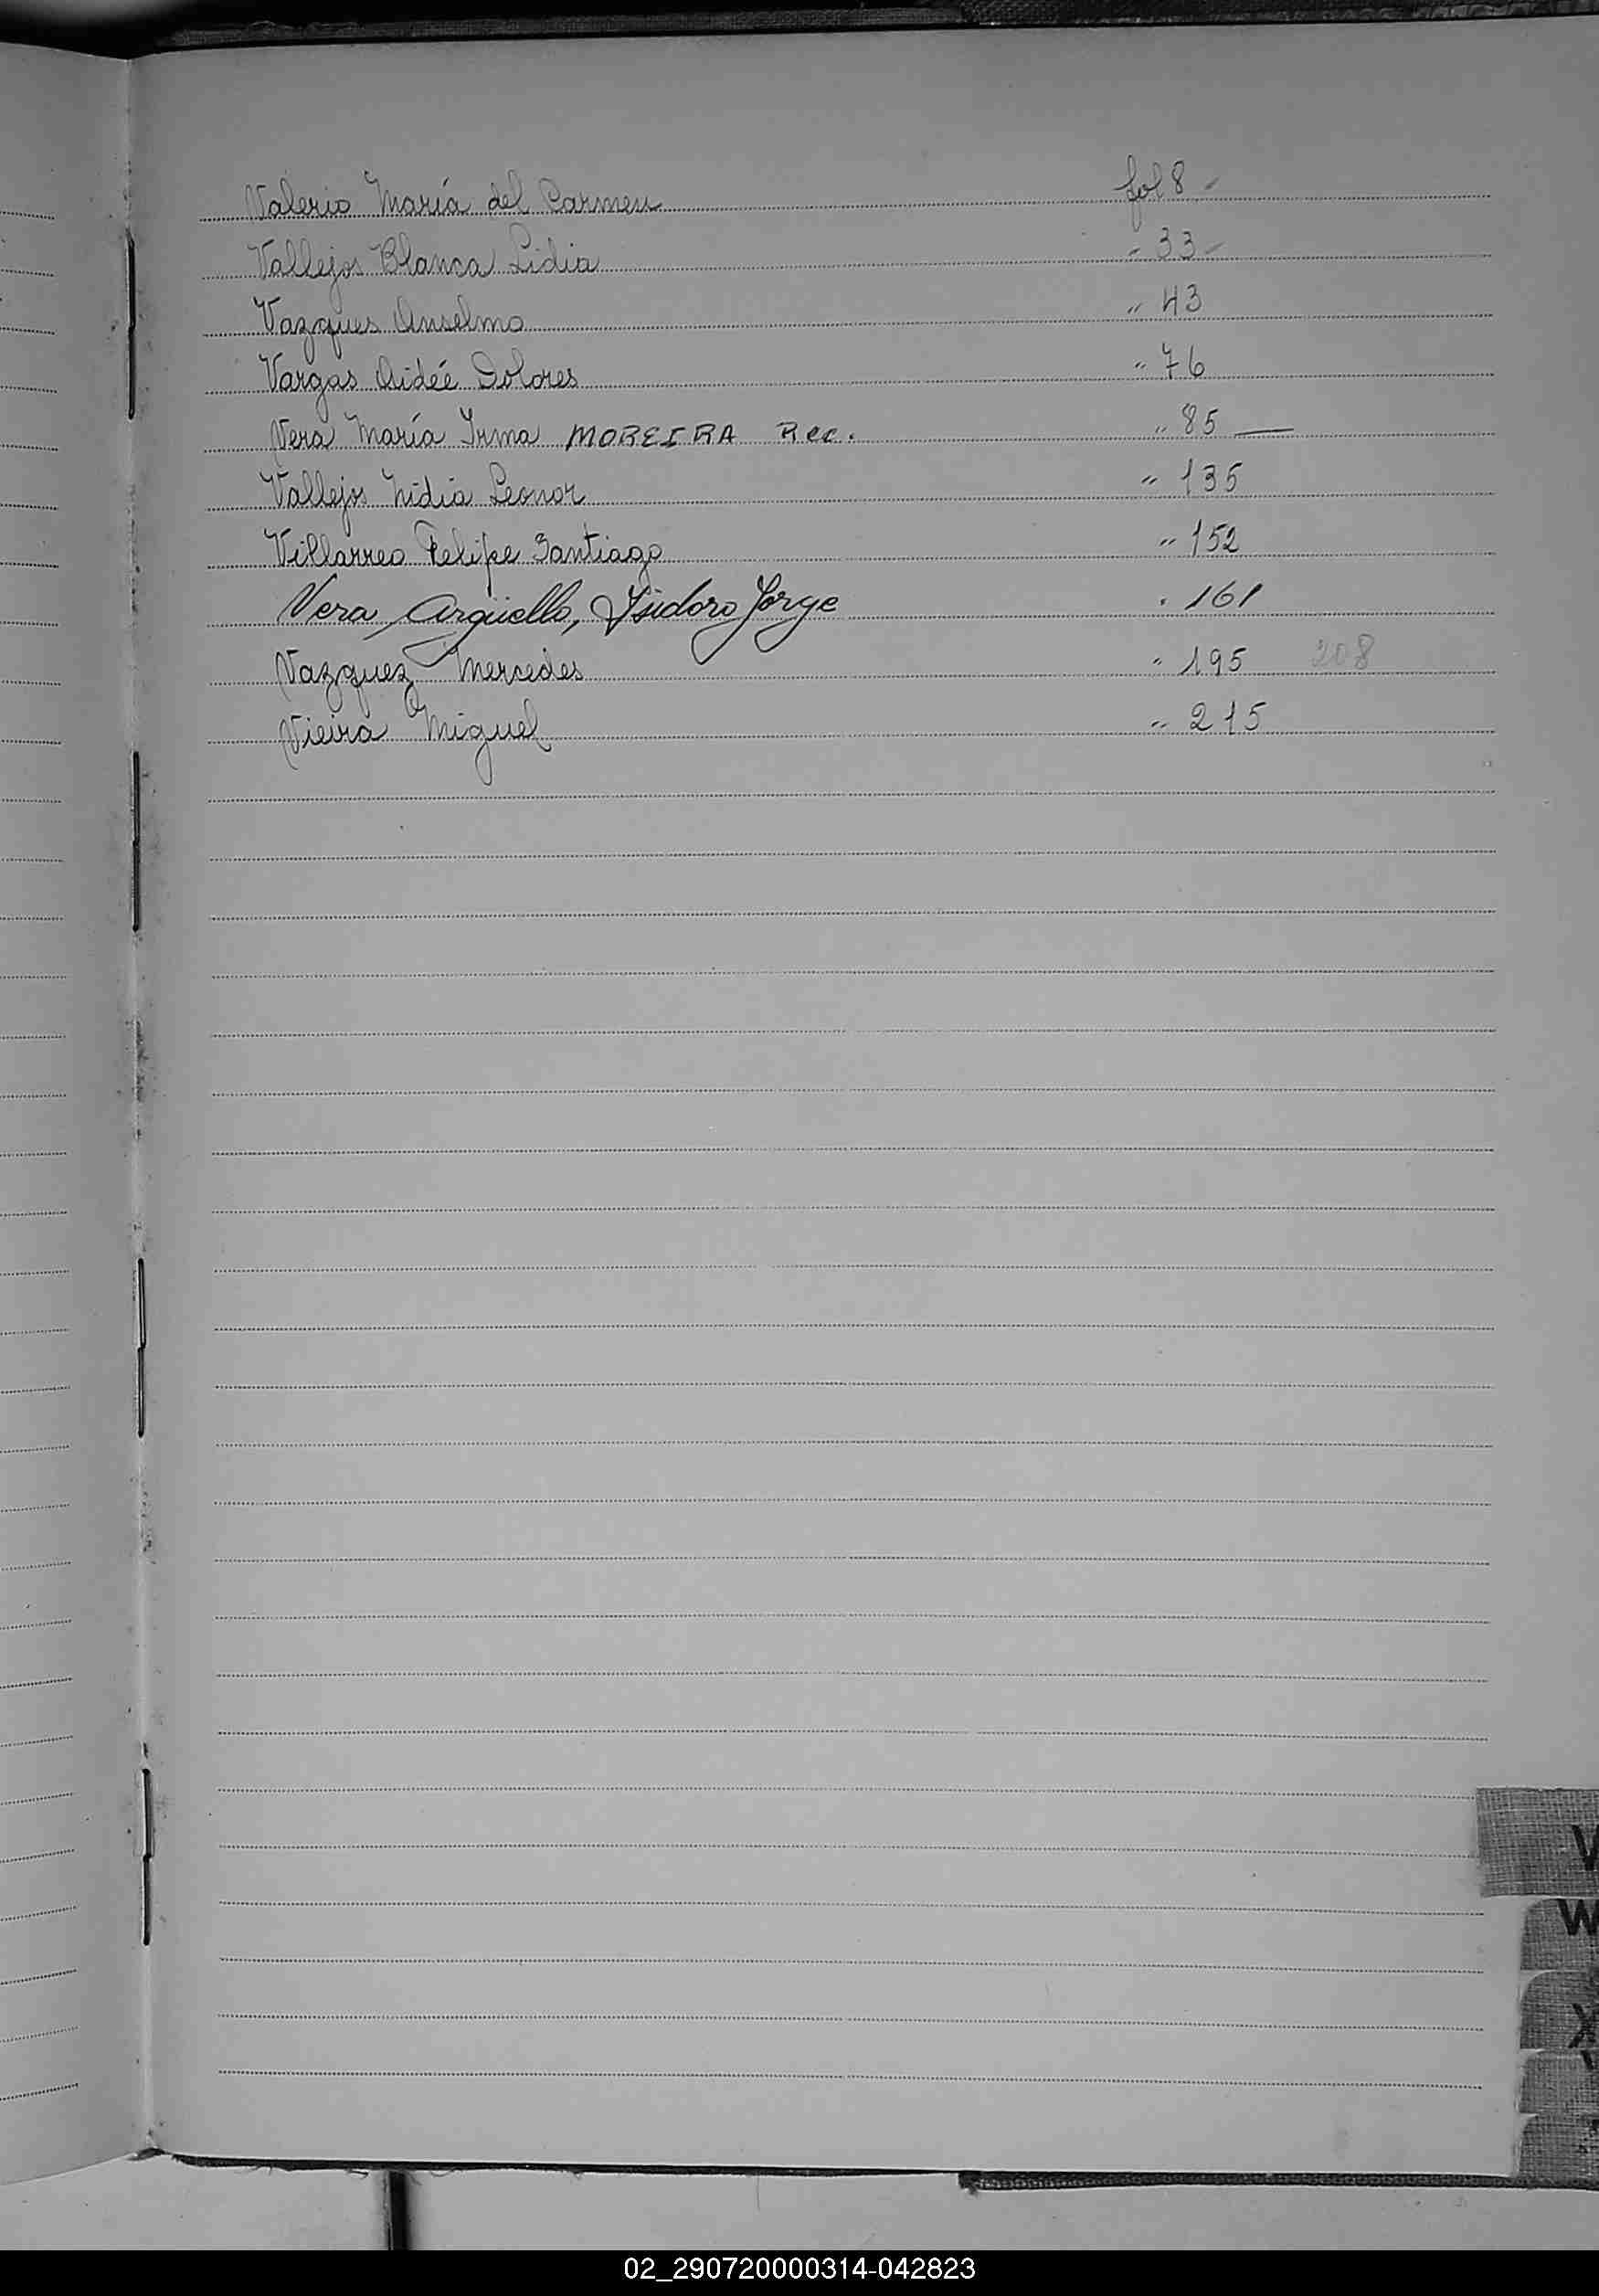 Valerio María del Carmen fol 8 -
Vallejos Blanca Lidia " 33 -
Vazques Anselmo " 43
Vargas Aidée Dolores " 76
Vera María Irma MOREIRA Rec. " 85 —
Vallejos Nidia Leonor " 135
Villarreo Felipe Santiago " 152
Vera Argüello, Ysidoro Jorge " 161
Vazquez Mercedes " 195 208
Vieira Miguel " 215
V
W
X
02_290720000314-042823